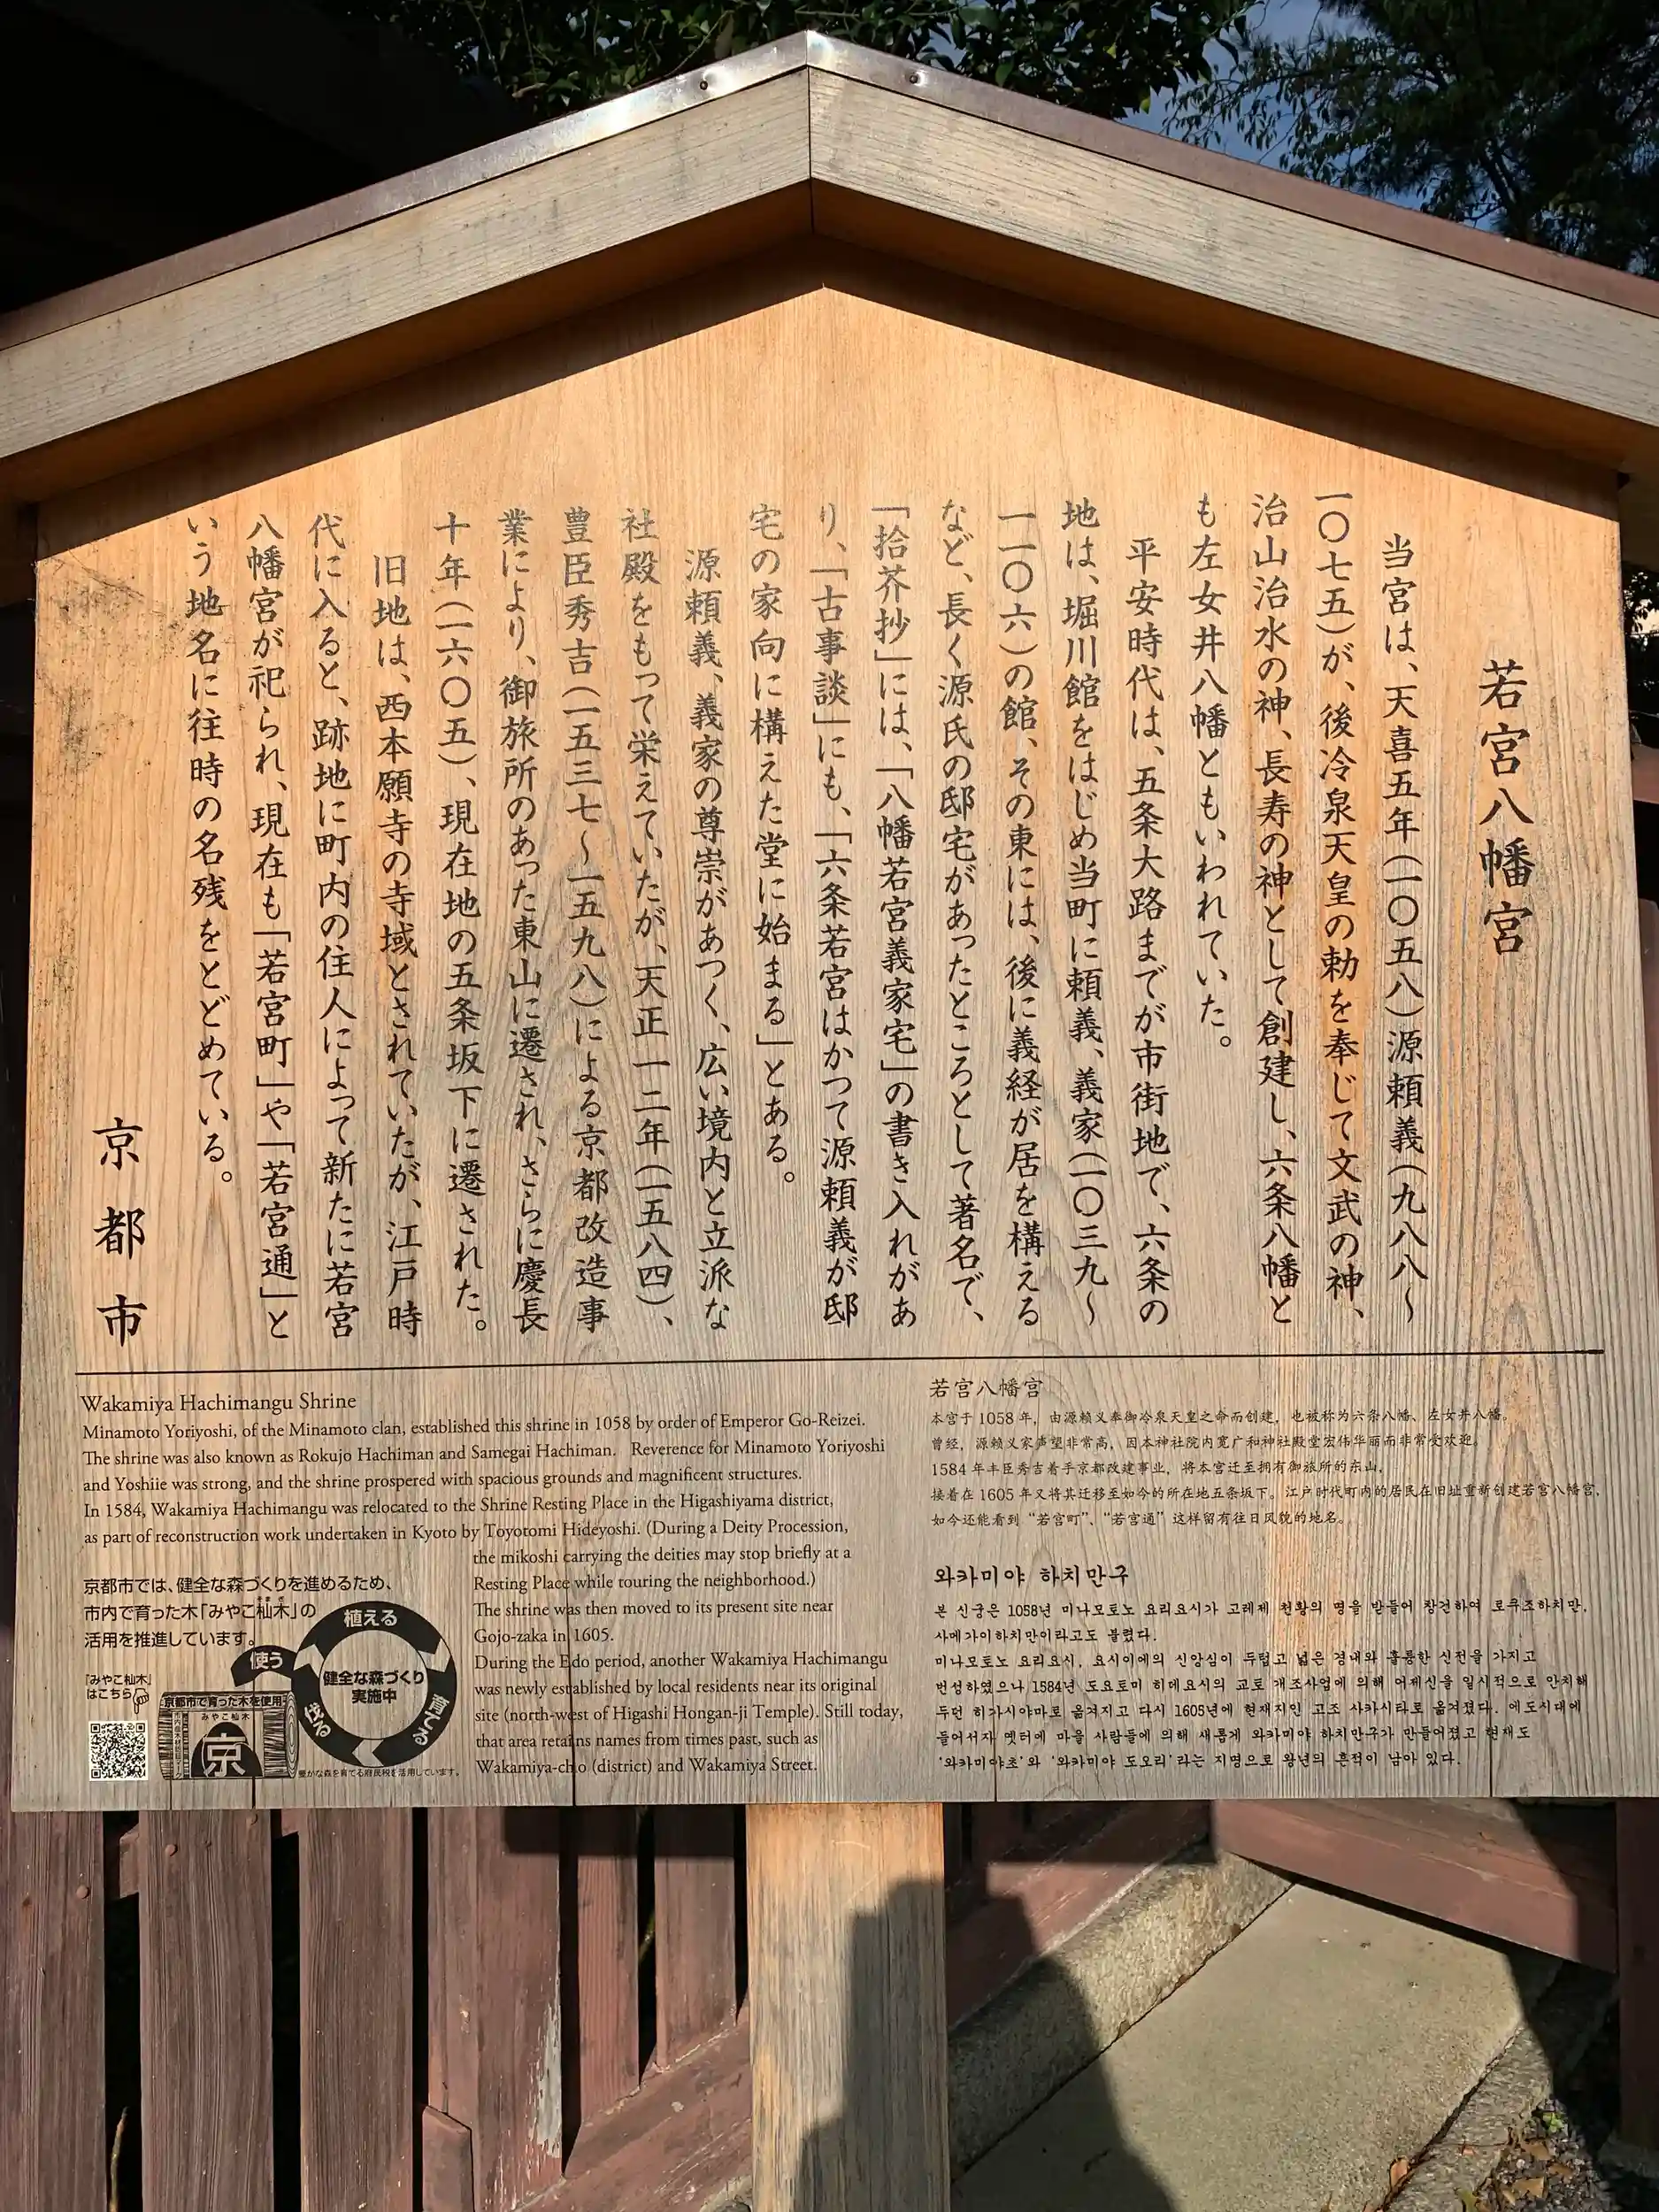 若宮八幡宮
当宮は、天喜五年(一〇五八)源頼義(九八八〜
一〇七五)が、後冷泉天皇の勅を奉じて文武の神、
治山治水の神、長寿の神として創建し、六条八幡と
も左女井八幡ともいわれていた。
平安時代は、五条大路までが市街地で、六条の
地は、堀川館をはじめ当町に頼義、義家(一〇三九〜
一一〇六)の館、その東には、後に義経が居を構える
など、長く源氏の邸宅があったところとして著名で、
「拾芥抄」には、「八幡若宮義家宅」の書き入れがあ
り、「古事談」にも、「六条若宮はかつて源頼義が邸
宅の家向に構えた堂に始まる」とある。
源頼義、義家の尊崇があつく、広い境内と立派な
社殿をもって栄えていたが、天正一二年(一五八四)、
豊臣秀吉(一五三七〜一五九八)による京都改造事
業により、御旅所のあった東山に遷され、さらに慶長
十年(一六〇五)、現在地の五条坂下に遷された。
旧地は、西本願寺の寺域とされていたが、江戸時
代に入ると、跡地に町内の住人によって新たに若宮
八幡宮が祀られ、現在も「若宮町」や「若宮通」と
いう地名に往時の名残をとどめている。
京都市
Wakamiya Hachimangu Shrine
Minamoto Yoriyoshi, of the Minamoto clan, established this shrine in 1058 by order of Emperor Go-Reizei.
The shrine was also known as Rokujo Hachiman and Samegai Hachiman. Reverence for Minamoto Yoriyoshi
and Yoshiie was strong, and the shrine prospered with spacious grounds and magnificent structures.
In 1584, Wakamiya Hachimangu was relocated to the Shrine Resting Place in the Higashiyama district,
as part of reconstruction work undertaken in Kyoto by Toyotomi Hideyoshi. (During a Deity Procession,
the mikoshi carrying the deities may stop briefly at a
Resting Place while touring the neighborhood.)
The shrine was then moved to its present site near
Gojo-zaka in 1605.
During the Edo period, another Wakamiya Hachimangu
was newly established by local residents near its original
site (north-west of Higashi Hongan-ji Temple). Still today,
that area retains names from times past, such as
Wakamiya-cho (district) and Wakamiya Street.
京都市では、健全な森づくりを進めるため、
市内で育った木「みやこ杣木」の
活用を推進しています。
「みやこ杣木」
はこちら
植える
育てる
伐る
使う
健全な森づくり
実施中
京都市で育った木を使用
みやこ杣木
京
豊かな森を育てる府民税を活用しています。
若宫八幡宫
本宫于1058年，由源赖义奉御冷泉天皇之命而创建，也被称为六条八幡、左女井八幡。
曾经，源赖义家声望非常高，因本神社院内宽广和神社殿堂宏伟华丽而非常受欢迎。
1584年丰臣秀吉着手京都改建事业，将本宫迁至拥有御旅所的东山，
接着在1605年又将其迁移至如今的所在地五条坂下。江户时代町内的居民在旧址重新创建若宫八幡宫，
如今还能看到“若宫町”、“若宫通”这样留有往日风貌的地名。
와카미야 하치만구
본 신궁은 1058년 미나모토노 요리요시가 고레제 천황의 명을 받들어 창건하여 로쿠조하치만,
사메가이하치만이라고도 불렸다.
미나모토노 요리요시, 요시이에의 신앙심이 두텁고 넓은 경내와 훌륭한 신전을 가지고
번성하였으나 1584년 도요토미 히데요시의 교토 개조사업에 의해 어제신을 일시적으로 안치해
두던 히가시야마로 옮겨지고 다시 1605년에 현재지인 고조 사카시타로 옮겨졌다. 에도시대에
들어서자 옛터에 마을 사람들에 의해 새롭게 와카미야 하치만구가 만들어졌고 현재도
'와카미야초'와 '와카미야 도오리'라는 지명으로 왕년의 흔적이 남아 있다.